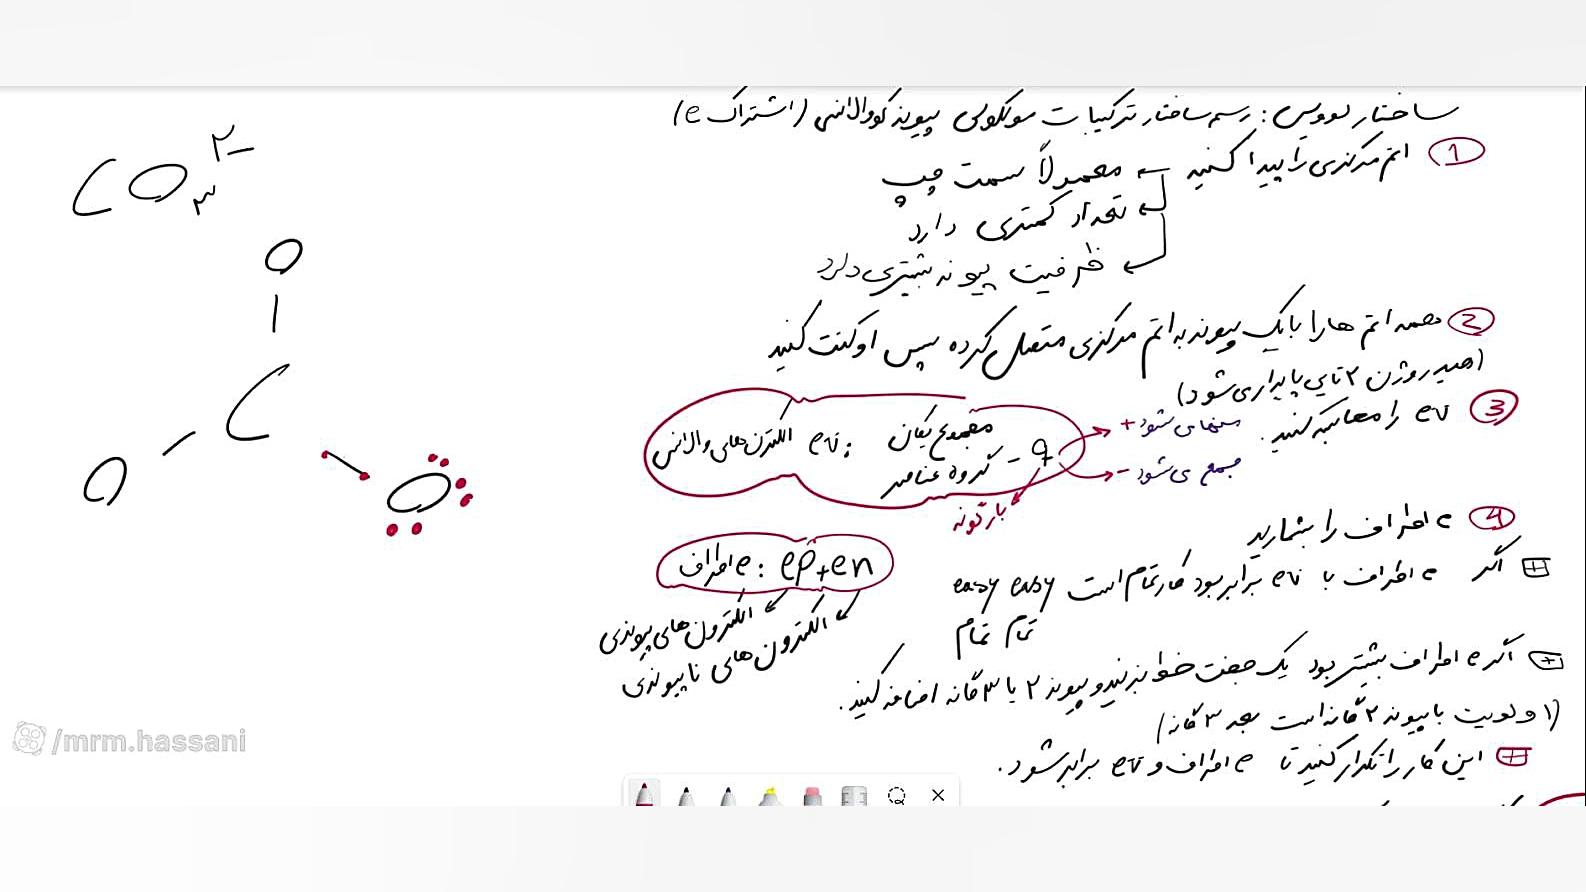 ساختار لوویس: رسم ساختار ترکیبات مولکولی پیوند کووالانسی (اشتراک e)
① اتم مرکزی را پیدا کنید ← معمولاً سمت چپ
← تعداد کمتری دارد
← ظرفیت پیوند بیشتری دارد
② همه اتم ها را با یک پیوند به اتم مرکزی متصل کرده سپس اوکتت کنید
(هیدروژن ۲ تایی پایدار می شود)
③ ev را محاسبه کنید.
الکترون های والانس ev: مجموع یکان گروه عناصر - q
+ منهای می شود
- جمع می شود
بار گونه
④ e اطراف را بشمارید
e اطراف: ep+en
الکترون های پیوندی
الکترون های ناپیوندی
اگر e اطراف با ev برابر بود کار تمام است easy easy
تمام تمام
اگر e اطراف بیشتر بود یک جفت خط بزنید و پیوند ۲ یا ۳ گانه اضافه کنید.
(اولویت با پیوند ۲ گانه است بعد ۳ گانه)
این کار را تکرار کنید تا e اطراف و ev برابر شود.
CO۳ ۲-
O
C
O
O
/mrm.hassani